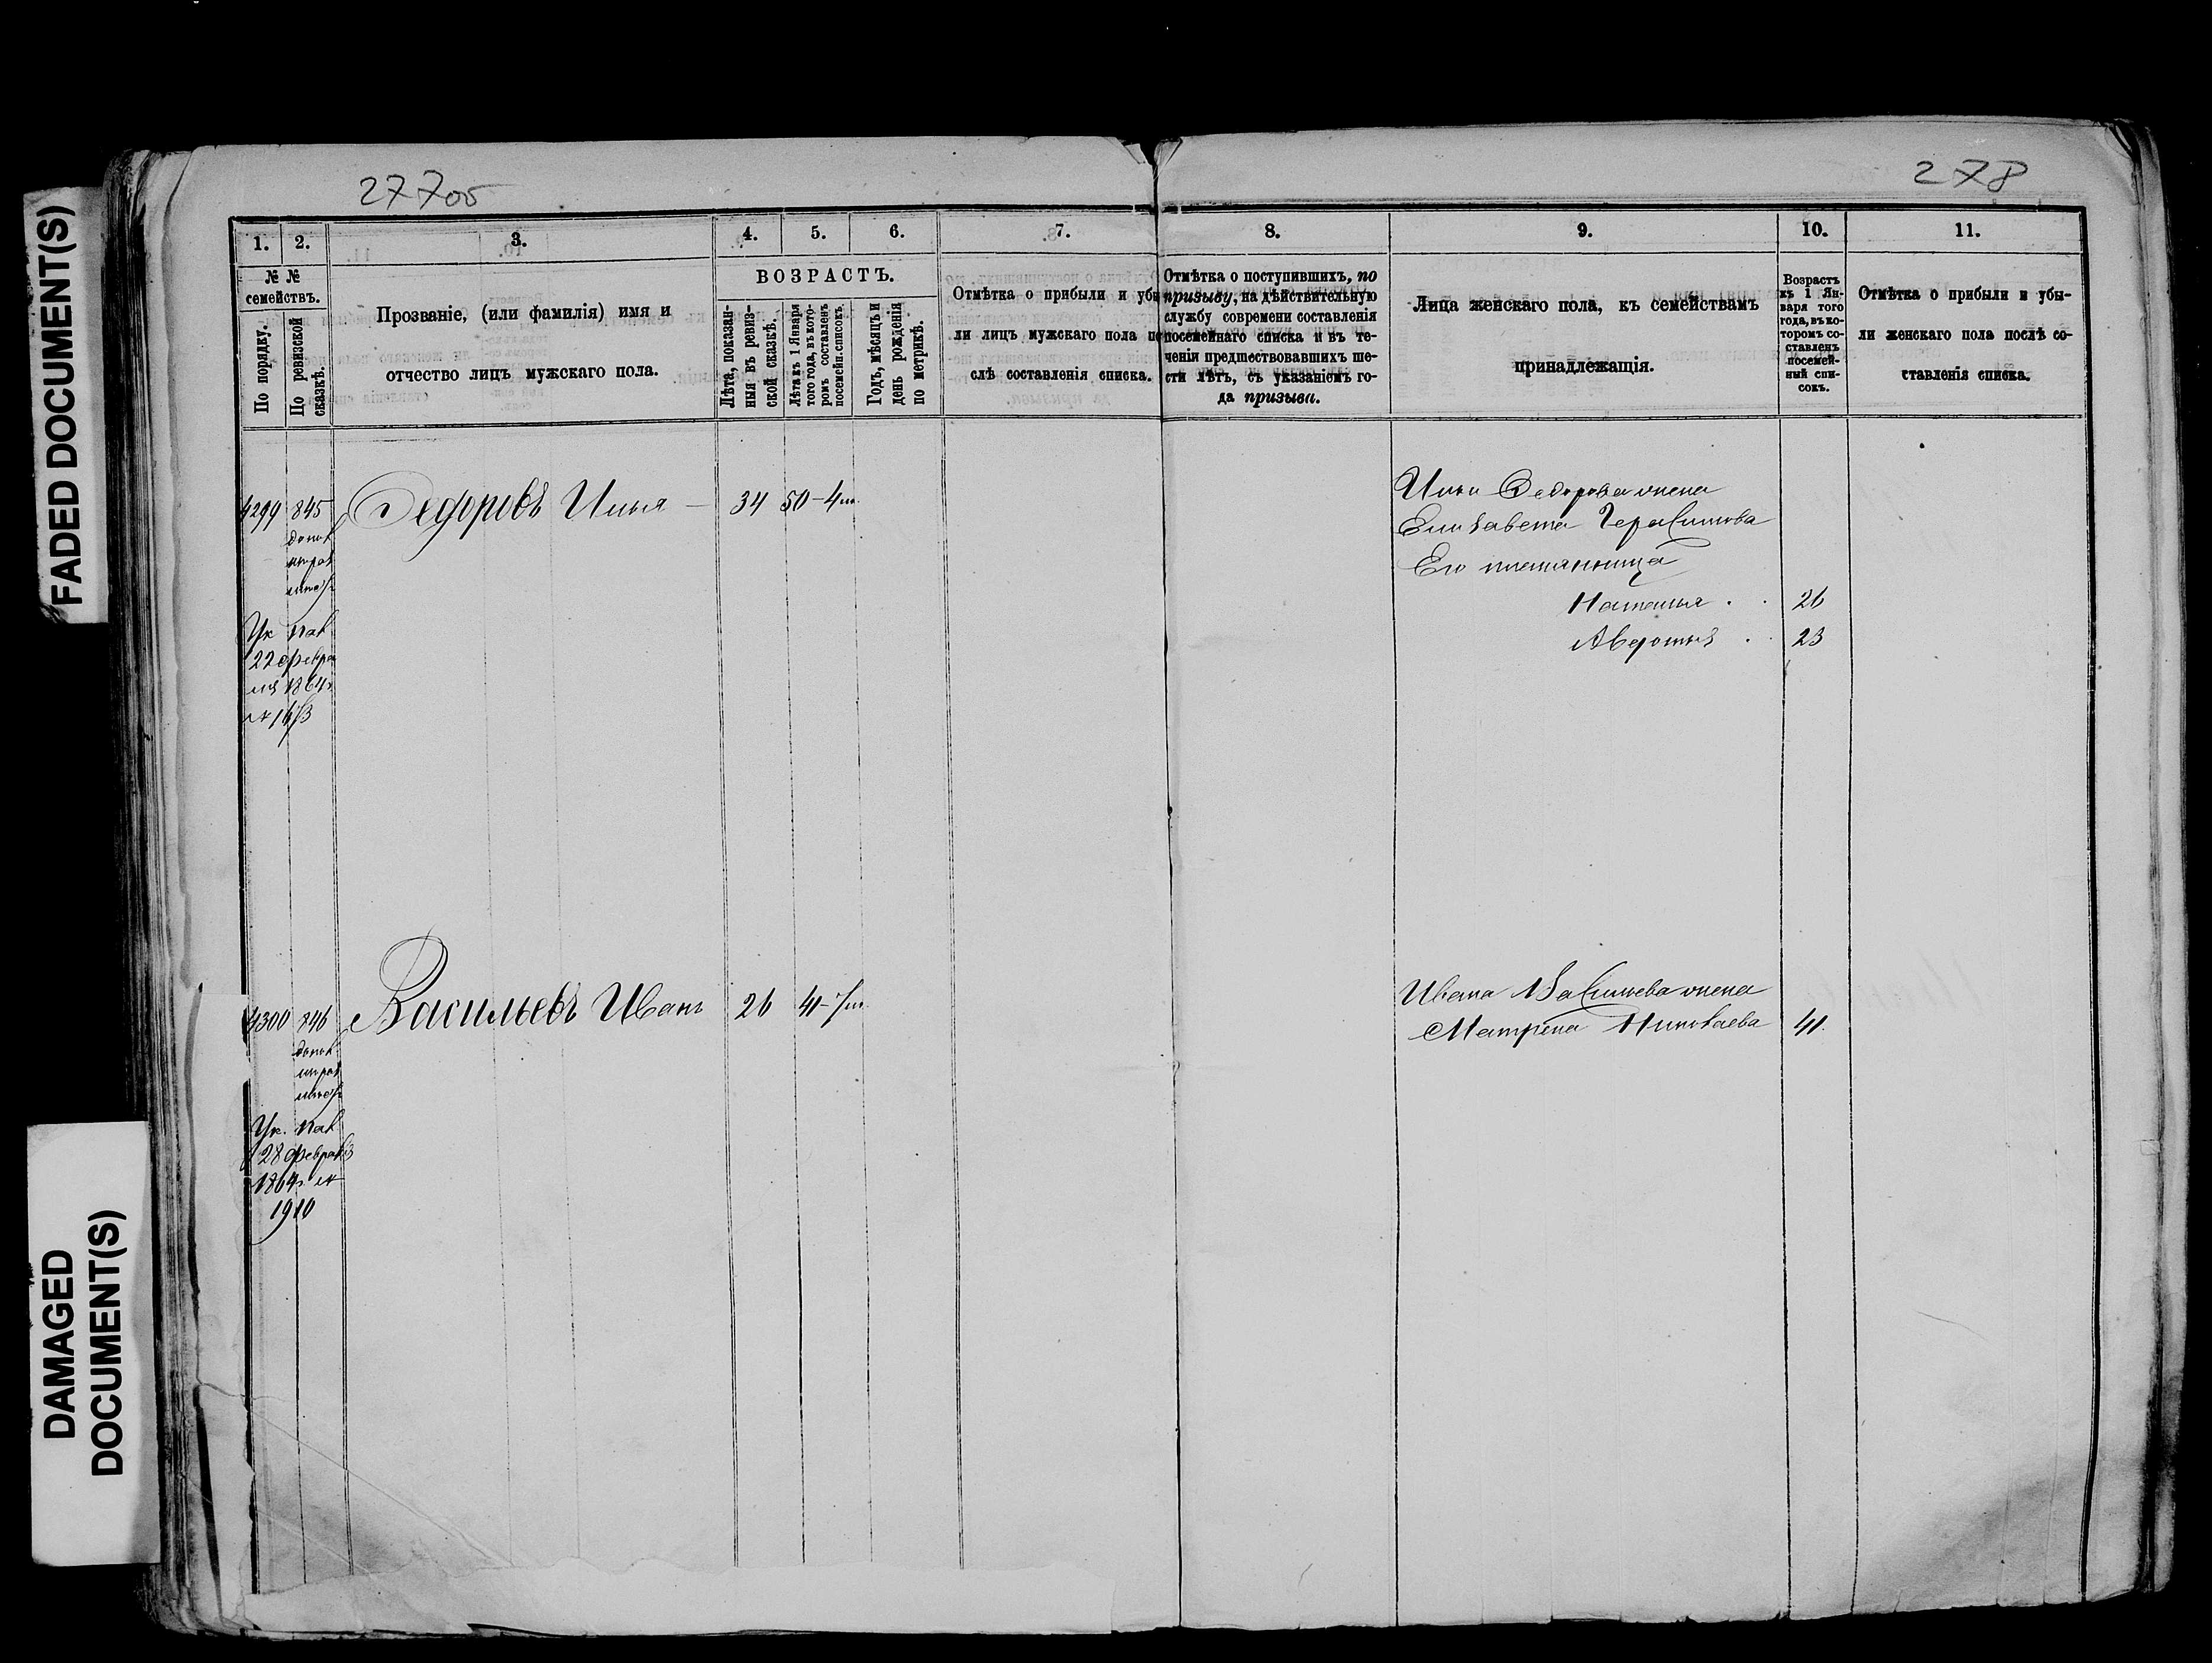 FADED DOCUMENT(S)
DAMAGED
DOCUMENT(S)
277об
278
1.
2.
3.
4.
5.
6.
7.
8.
9.
10.
11.
№ №
семействъ.
По порядку.
По ревизской
сказкѣ.
Прозваніе, (или фамилія) имя и
отчество лицъ мужскаго пола.
ВОЗРАСТЪ.
Лѣта, показан-
ныя въ ревиз-
ской сказкѣ.
Лѣта къ 1 Января
того года, въ кото-
ромъ составленъ
посемейн. списокъ.
Годъ, мѣсяцъ и
день рожденія
по метрикѣ.
Отмѣтка о прибыли и убы
ли лицъ мужскаго пола по
слѣ составленія списка.
Отмѣтка о поступившихъ, по
призыву, на дѣйствительную
службу современи составленія
посемейнаго списка и въ те-
ченіи предшествовавшихъ ше-
сти лѣтъ, съ указаніемъ го-
да призыва.
Лица женскаго пола, къ семействамъ
принадлежащія.
Возрастъ
къ 1 Ян-
варя того
года, въ ко-
торомъ со-
ставленъ
посемей-
ный спи-
сокъ.
Отмѣтка о прибыли и убы-
ли женскаго пола послѣ со-
ставленія списка.
4299 845 Федоровъ Илья 34 50-4м.
допол
Ук пал
22 февра
ля 1864г
№ 1673
Ильи Федорова жена
Елизавета Герасимова
Его племянница
Наталья . . 26
Авдотья . . 23
4300 846 Васильевъ Иванъ 26 41-7м.
допол
Ук. пал
28 февраля
1864г. №
1910
Ивана Васильева жена
Матрена Николаева 41.